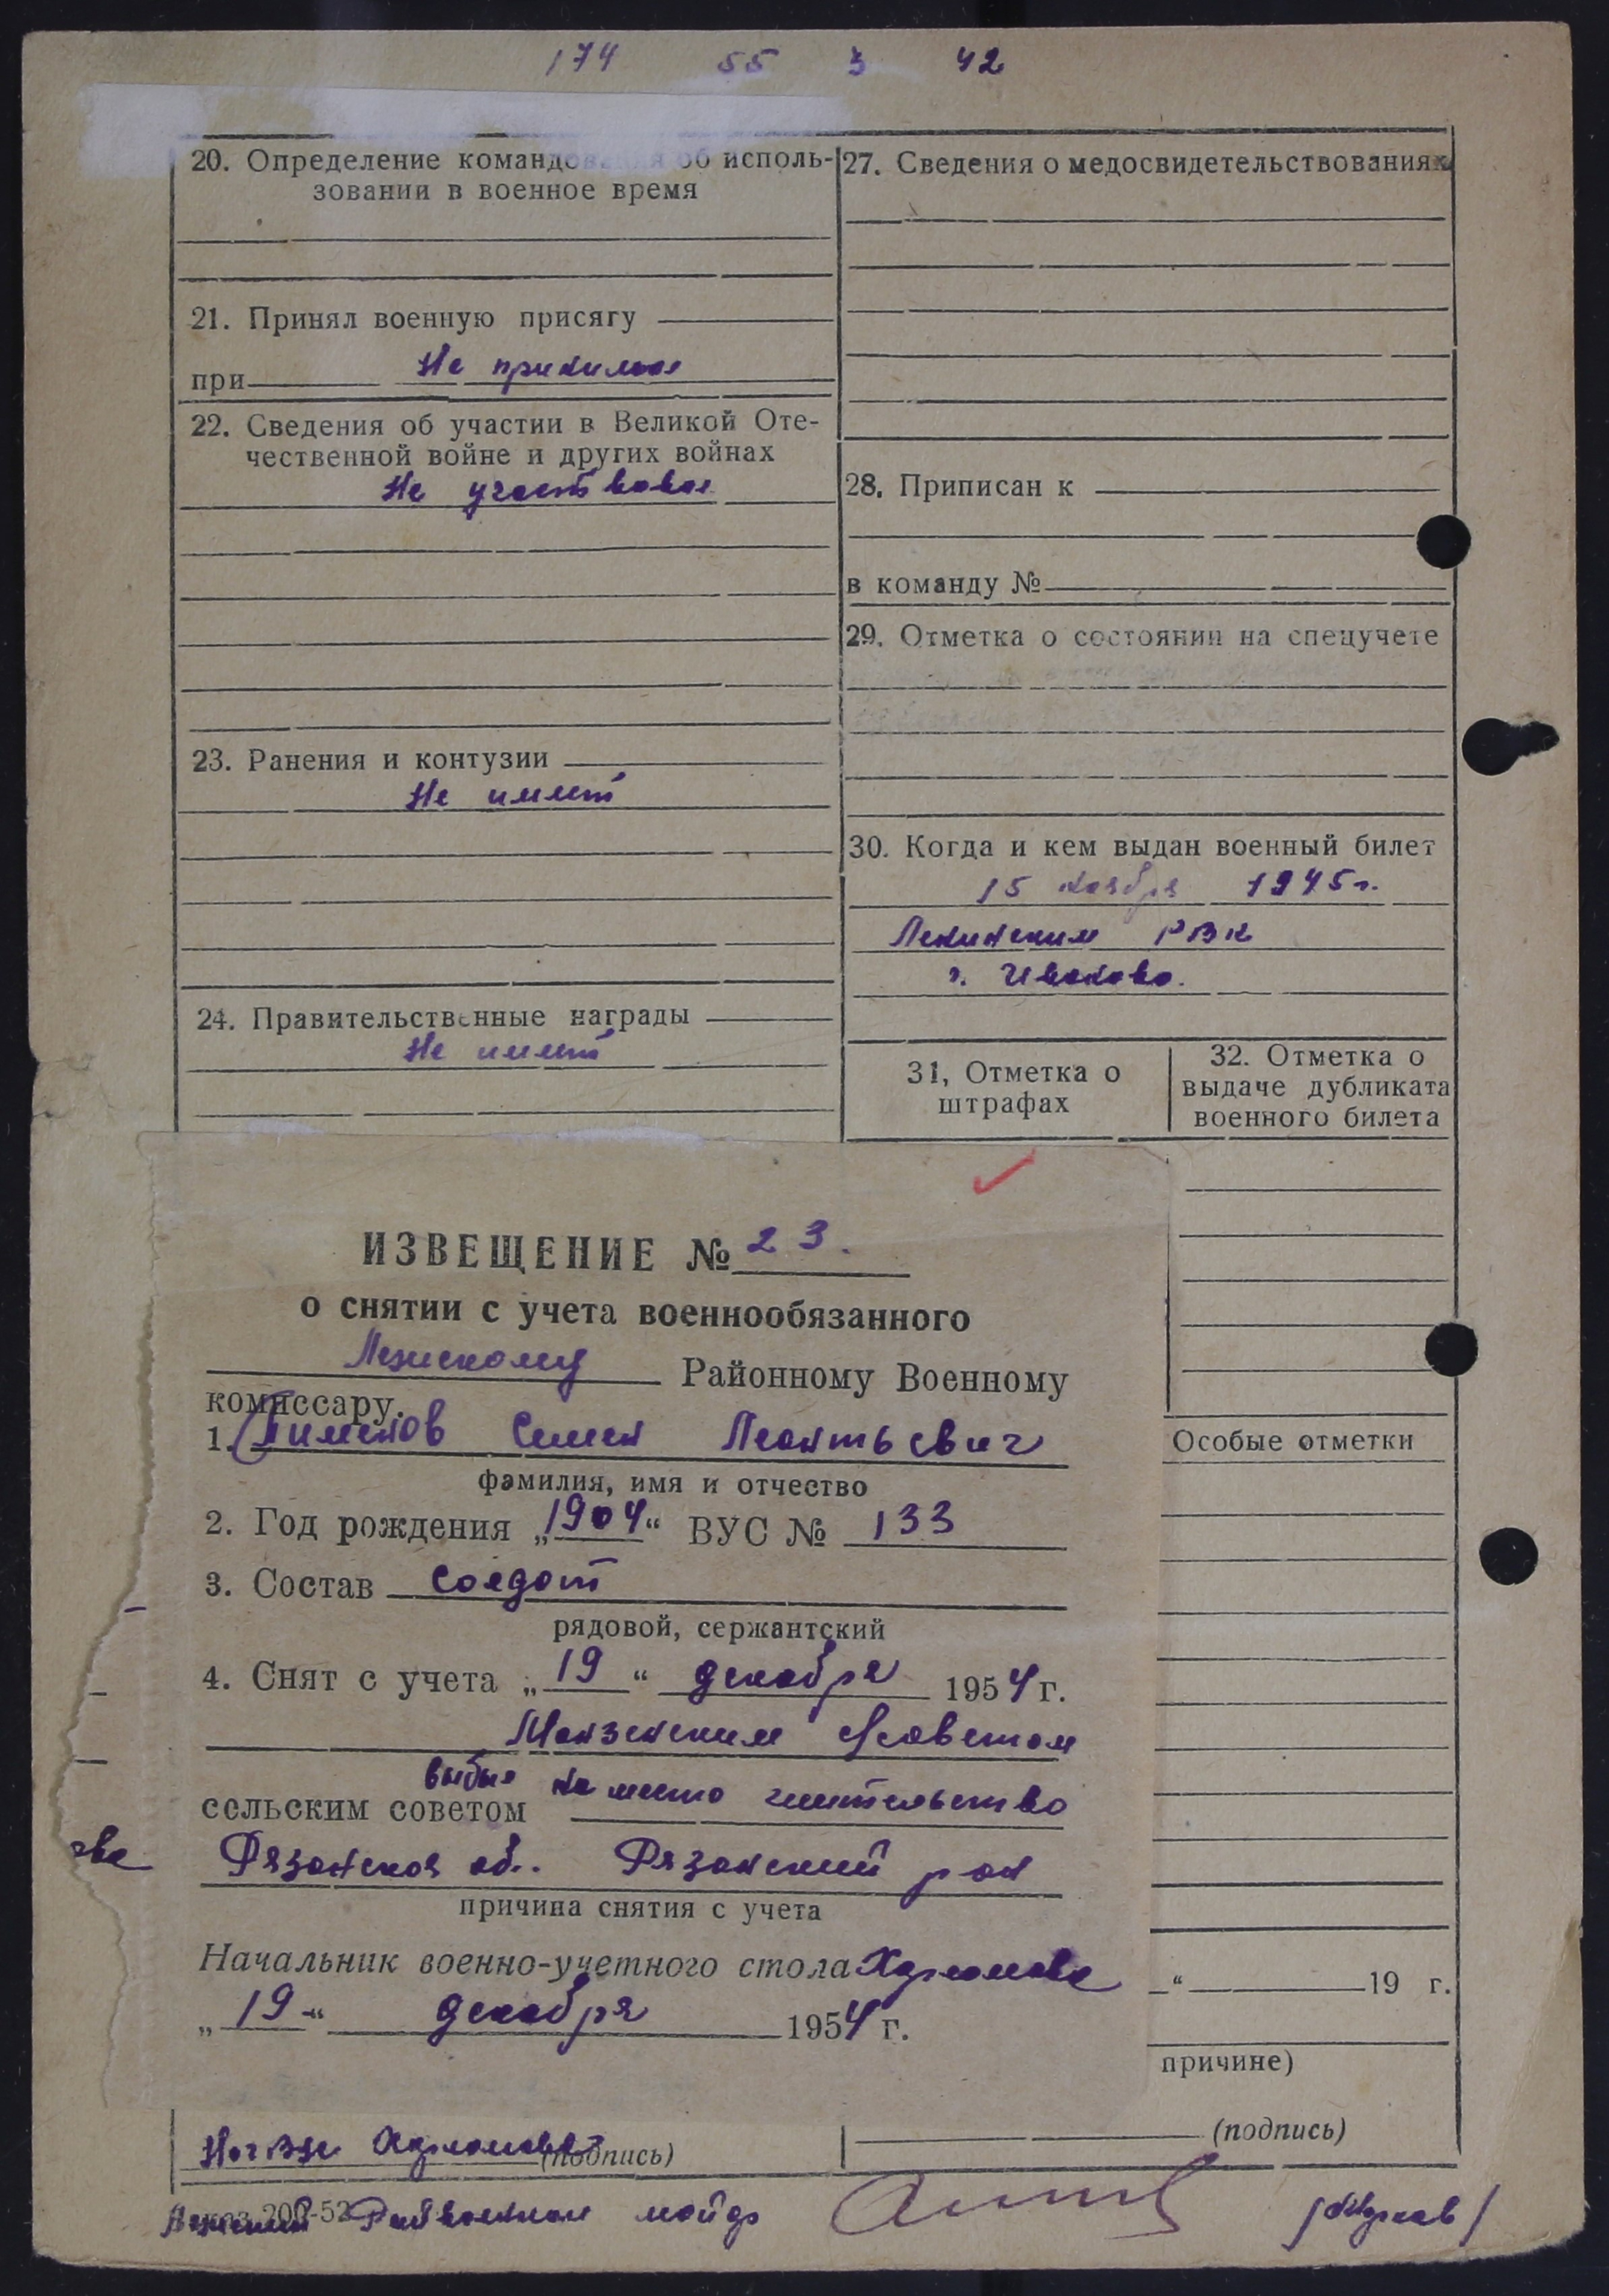 174 55 3 42
20. Определение командования об исполь-
зовании в военное время
21. Принял военную присягу
при Не принимал
22. Сведения об участии в Великой Оте-
чественной войне и других войнах
Не участвовал
23. Ранения и контузии
Не имеет
24. Правительственные награды
Не имеет
27. Сведения о медосвидетельствованиях
28. Приписан к
в команду №
29. Отметка о состоянии на спецучете
30. Когда и кем выдан военный билет
15 ноября 1945 г.
Ленинским РВК
г. Иваново.
31, Отметка о
штрафах
32. Отметка о
выдаче дубликата
военного билета
ИЗВЕЩЕНИЕ № 23.
о снятии с учета военнообязанного
Районному Военному
комиссару.
1. Пименов Семен Леонтьевич
фамилия, имя и отчество
2. Год рождения „1904“ ВУС № 133
3. Состав солдат
рядовой, сержантский
4. Снят с учета „19“ декабря 1954 г.
сельским советом выбыл на место жительство
Рязанская об. Рязанский рон
причина снятия с учета
Начальник военно-учетного стола
„19“ декабря 1954 г.
Особые отметки
“ 19 г.
причине)
(подпись)
(подпись)
майор